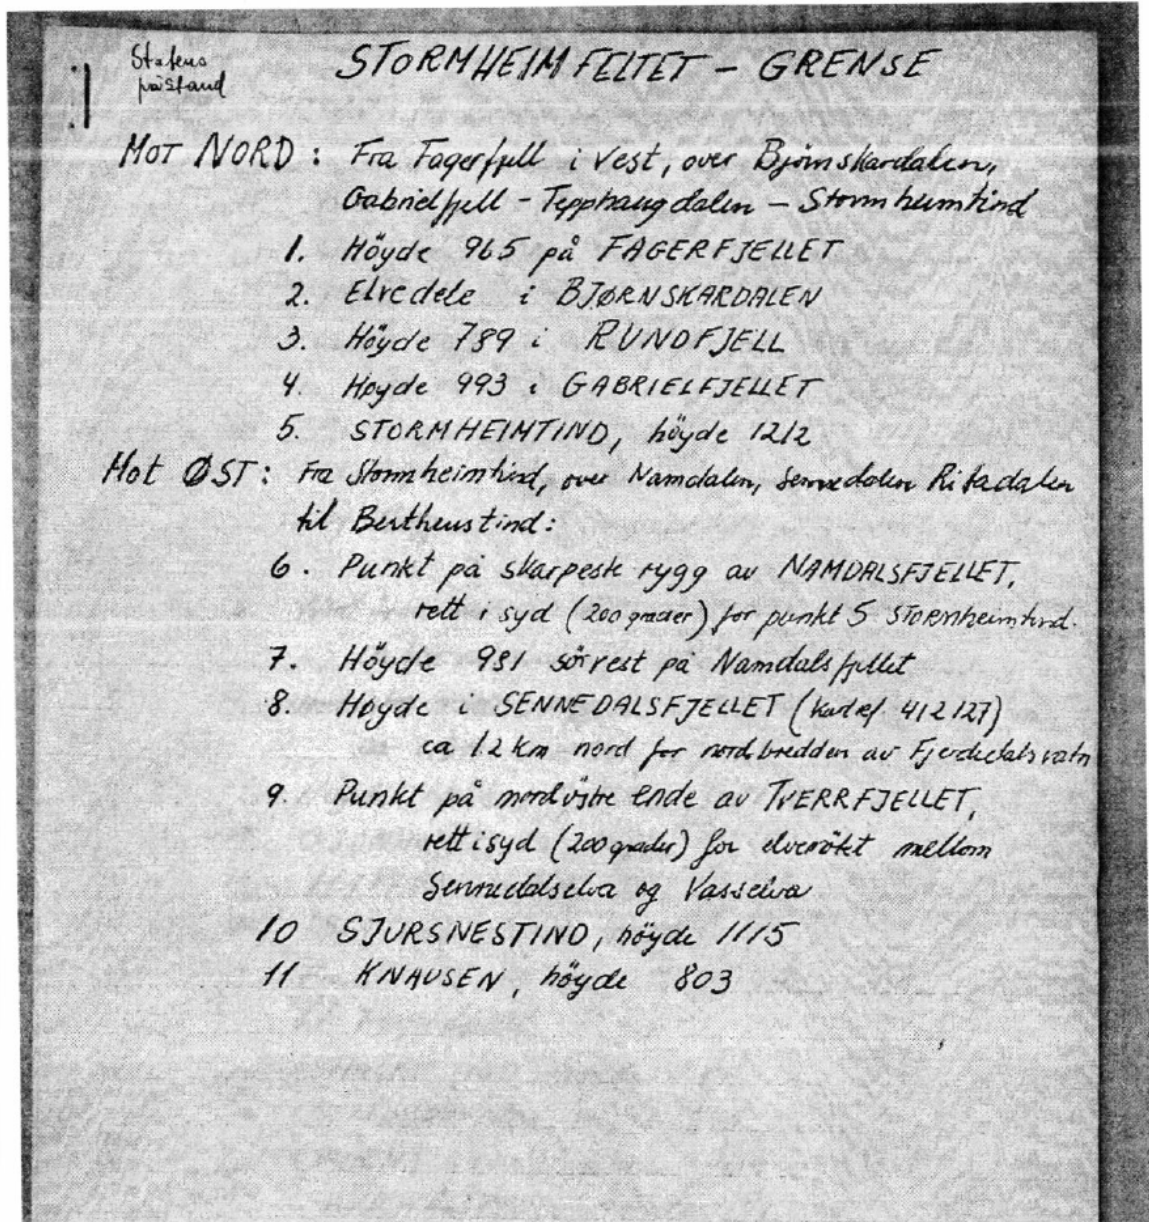 Statens
påstand
STORMHEIMFELTET - GRENSE
MOT NORD: Fra Fagerfjell i vest, over Bjørnskardalen,
Gabrielfjell - Tepphaugdalen - Stormheimtind
1. Höyde 965 på FAGERFJELLET
2. Elvedele i BJØRNSKARDALEN
3. Höyde 789 i RUNDFJELL
4. Høyde 993 i GABRIELFJELLET
5. STORMHEIMTIND, höyde 1212
Mot ØST: Fra Stormheimtind, over Namdalen, Sennedalen Ritadalen
til Bertheustind:
6. Punkt på skarpeste rygg av NAMDALSFJELLET,
rett i syd (200 grader) for punkt 5 STORMheimtind.
7. Höyde 981 sörvest på Namdalsfjellet
8. Høyde i SENNEDALSFJELLET (kartref. 412127)
ca 1.2 km nord for nordbredden av Fjerdedalsvatn
9. Punkt på nordvestre ende av TVERRFJELLET,
rett i syd (200 grader) for elvemötet mellom
Sennedalselva og Vasselva
10 SJURSNESTIND, höyde 1115
11 KNAUSEN, höyde 803